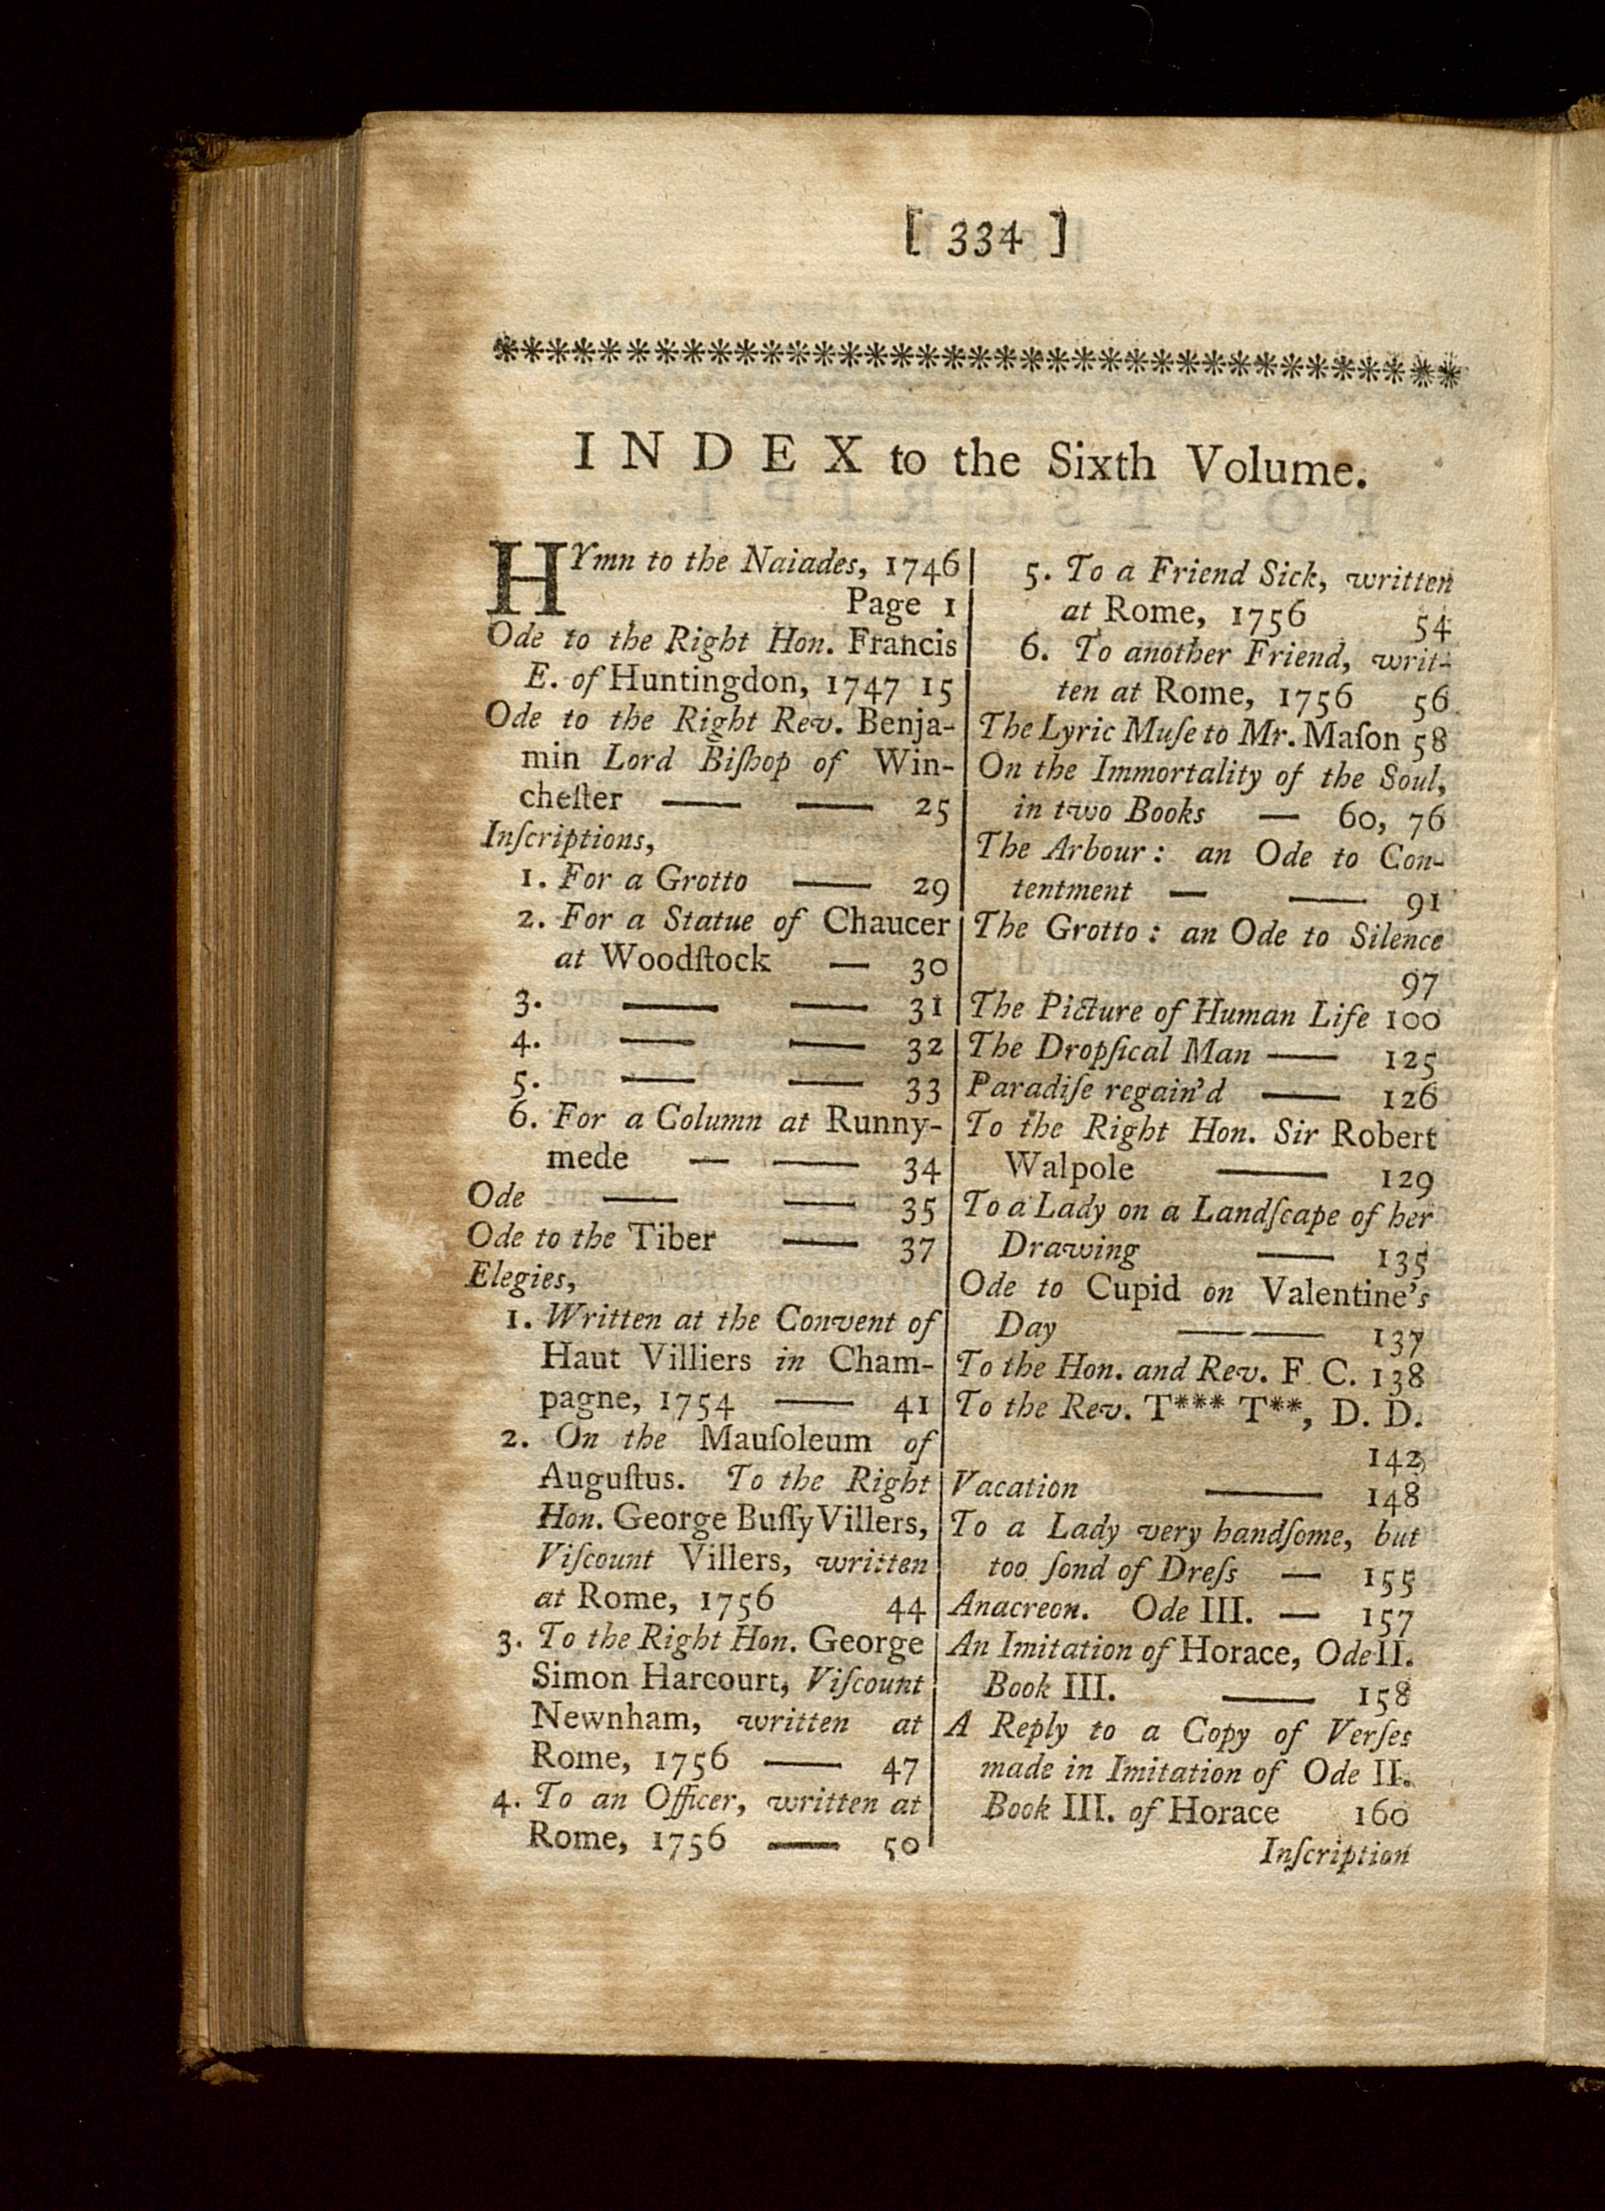 [ 334 ]
INDEX to the Sixth Volume.
HYmn to the Naiades, 1746
Page 1
Ode to the Right Hon. Francis
E. of Huntingdon, 1747 15
Ode to the Right Rev. Benja-
min Lord Biſhop of Win-
cheſter —— —— 25
Inſcriptions,
1. For a Grotto —— 29
2. For a Statue of Chaucer
at Woodſtock — 30
3. —— —— 31
4. —— —— 32
5. —— —— 33
6. For a Column at Runny-
mede — —— 34
Ode —— —— 35
Ode to the Tiber —— 37
Elegies,
1. Written at the Convent of
Haut Villiers in Cham-
pagne, 1754 —— 41
2. On the Mauſoleum of
Auguſtus. To the Right
Hon. George Buſſy Villers,
Viſcount Villers, written
at Rome, 1756 44
3. To the Right Hon. George
Simon Harcourt, Viſcount
Newnham, written at
Rome, 1756 —— 47
4. To an Officer, written at
Rome, 1756 —— 50
5. To a Friend Sick, written
at Rome, 1756 54
6. To another Friend, writ-
ten at Rome, 1756 56
The Lyric Muſe to Mr. Maſon 58
On the Immortality of the Soul,
in two Books — 60, 76
The Arbour: an Ode to Con-
tentment — —— 91
The Grotto: an Ode to Silence
97
The Picture of Human Life 100
The Dropſical Man —— 125
Paradiſe regain'd —— 126
To the Right Hon. Sir Robert
Walpole —— 129
To a Lady on a Landſcape of her
Drawing —— 135
Ode to Cupid on Valentine's
Day —— —— 137
To the Hon. and Rev. F. C. 138
To the Rev. T*** T**, D. D.
142
Vacation —— 148
To a Lady very handſome, but
too ſond of Dreſs — 155
Anacreon. Ode III. — 157
An Imitation of Horace, Ode II.
Book III. —— 158
A Reply to a Copy of Verſes
made in Imitation of Ode II.
Book III. of Horace 160
Inſcription